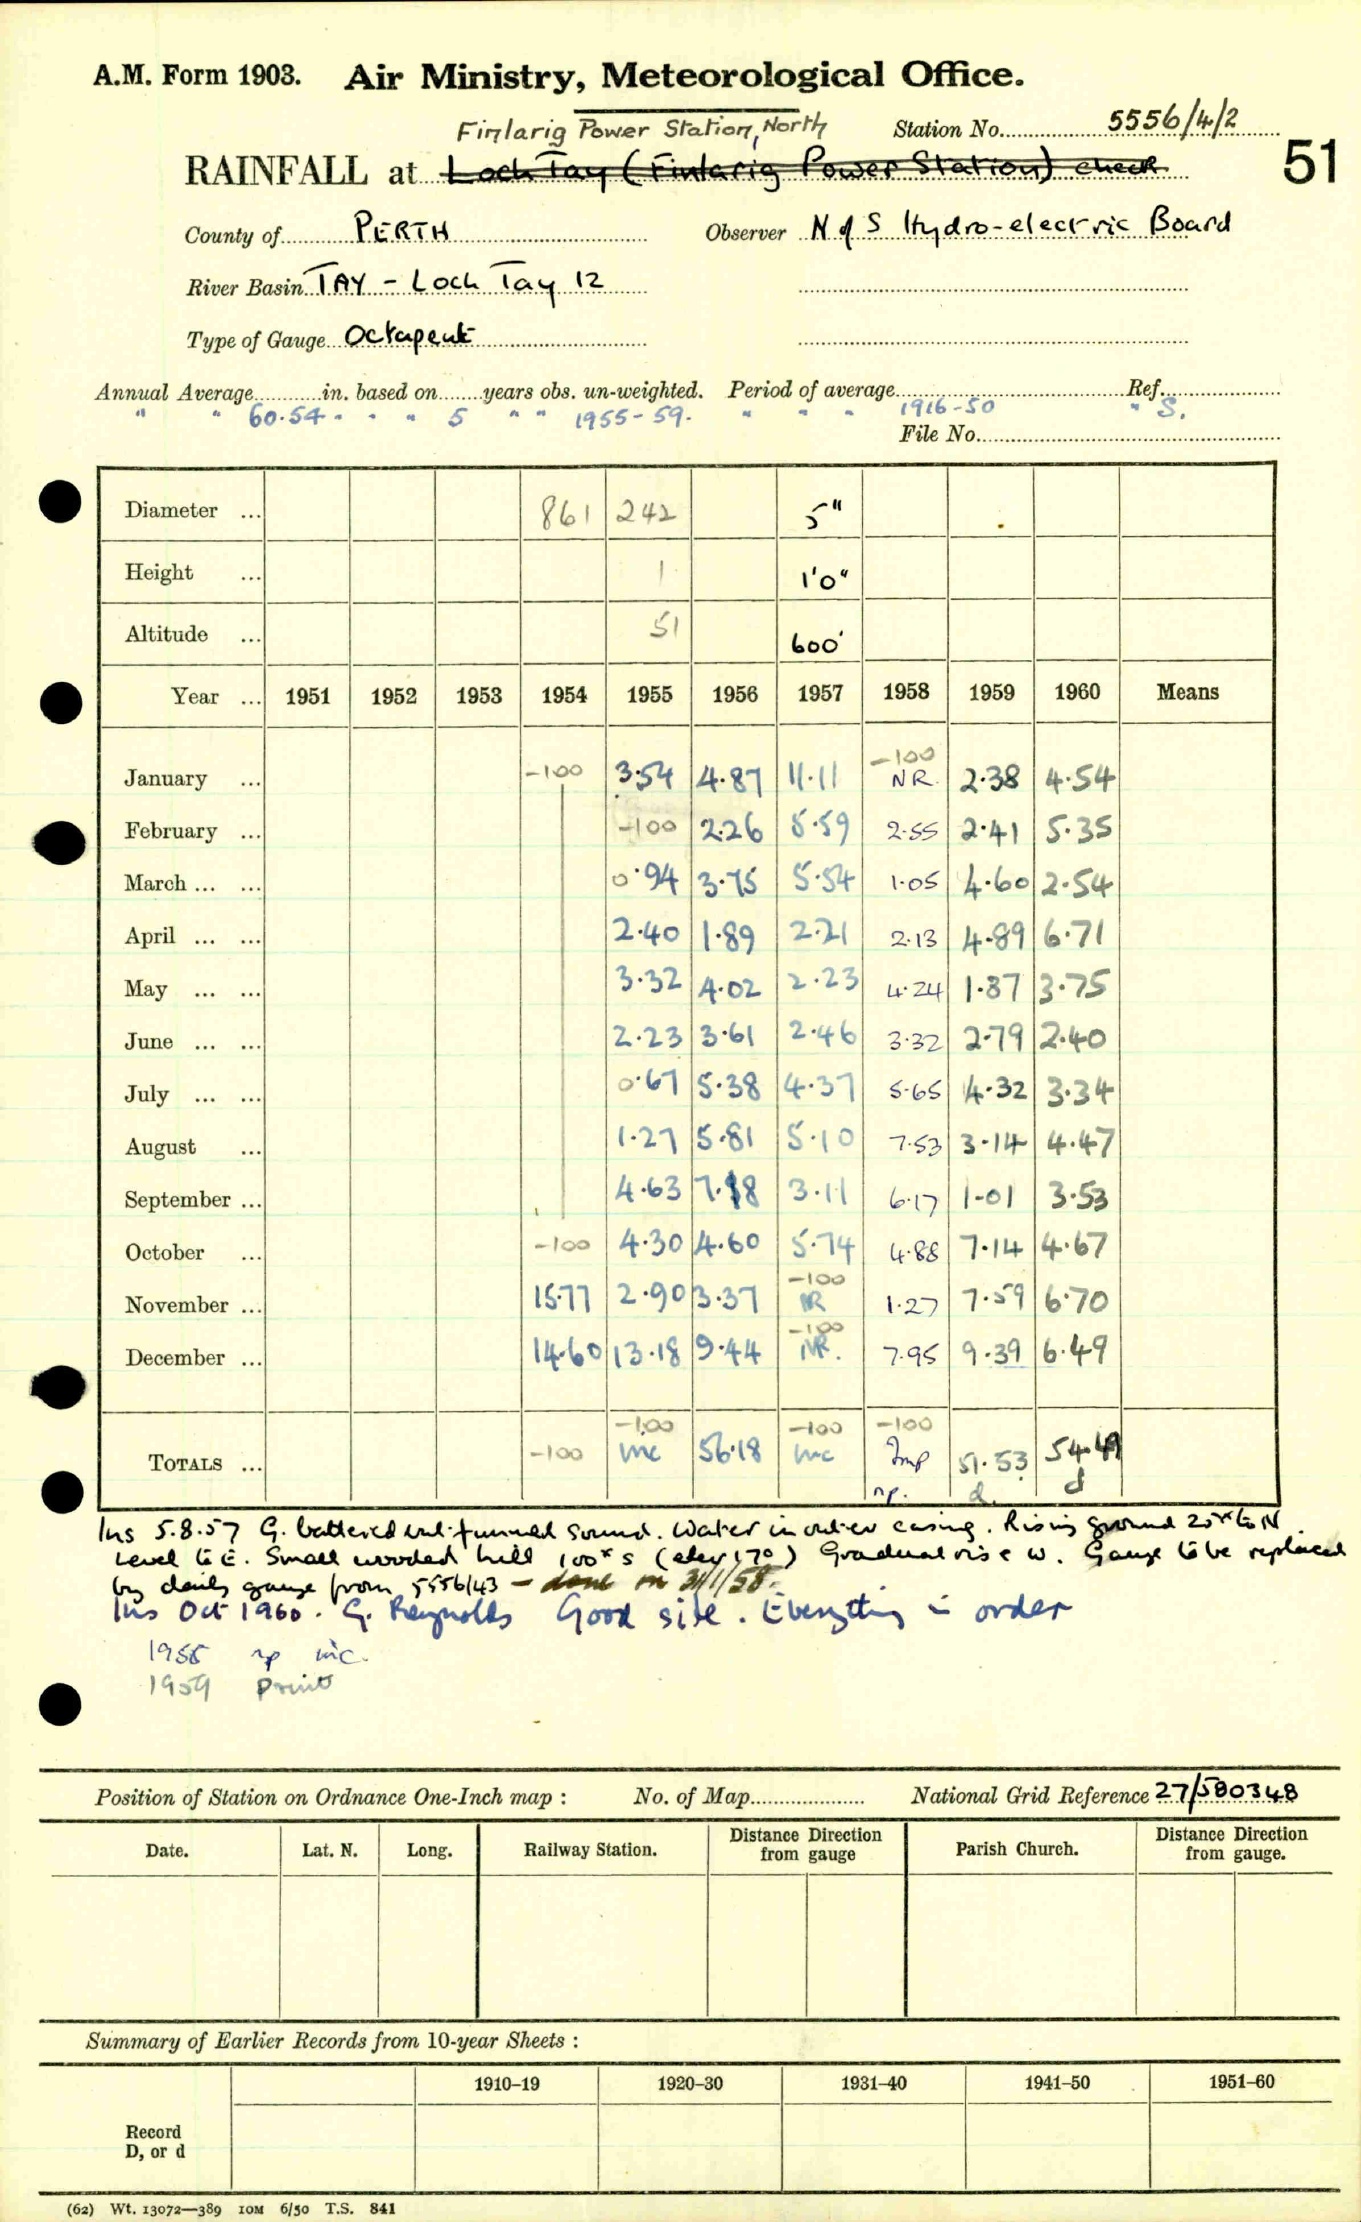 A.M. Form 1903. Air Ministry, Meteorological Office.
Finlarig Power Station, North Station No. 5556/4/2
RAINFALL at Loch Tay (Finlarig Power Station) check 51
County of PERTH Observer N of S Hydro-electric Board
River Basin TAY - Loch Tay 12
Type of Gauge Octapent
Annual Average in. based on years obs. un-weighted. Period of average Ref.
" " 60.54 " " " 5 " " 1955-59. " " " 1916-50 " S.
File No.
Diameter ... 861 242 5"
Height ... 1 1'0"
Altitude ... 51 600'
Year ... 1951 1952 1953 1954 1955 1956 1957 1958 1959 1960 Means
January ... -100 3.54 4.87 11.11 -100 NR. 2.38 4.54
February ... -100 2.26 5.59 2.55 2.41 5.35
March ... ... 0.94 3.75 5.54 1.05 4.60 2.54
April ... ... 2.40 1.89 2.21 2.13 4.89 6.71
May ... ... 3.32 4.02 2.23 4.24 1.87 3.75
June ... ... 2.23 3.61 2.46 3.32 2.79 2.40
July ... ... 0.67 5.38 4.37 5.65 4.32 3.34
August ... 1.27 5.81 5.10 7.53 3.14 4.47
September ... 4.63 7.18 3.11 6.17 1.01 3.53
October ... -100 4.30 4.60 5.74 4.88 7.14 4.67
November ... 15.77 2.90 3.37 -100 NR 1.27 7.59 6.70
December ... 14.60 13.18 9.44 -100 NR. 7.95 9.39 6.49
TOTALS ... -100 -100 inc 56.18 -100 inc -100 Imp np. 51.53 d. 54.49 d
Ins 5.8.57 G. battered but funnel sound. Water in outer casing. Rising ground 25x to N.
Level to E. Small wooded hill 100x S (elev 17°) Gradual rise W. Gauge to be replaced
by daily gauge from 5556/43 - done on 31/1/58.
Ins Oct 1960. G. Reynolds Good site. Everything in order
1958 np inc.
1959 print
Position of Station on Ordnance One-Inch map : No. of Map National Grid Reference 27/580348
Date. Lat. N. Long. Railway Station. Distance Direction from gauge Parish Church. Distance Direction from gauge.
Summary of Earlier Records from 10-year Sheets :
1910-19 1920-30 1931-40 1941-50 1951-60
Record
D, or d
(62) Wt. 13072—389 10M 6/50 T.S. 841